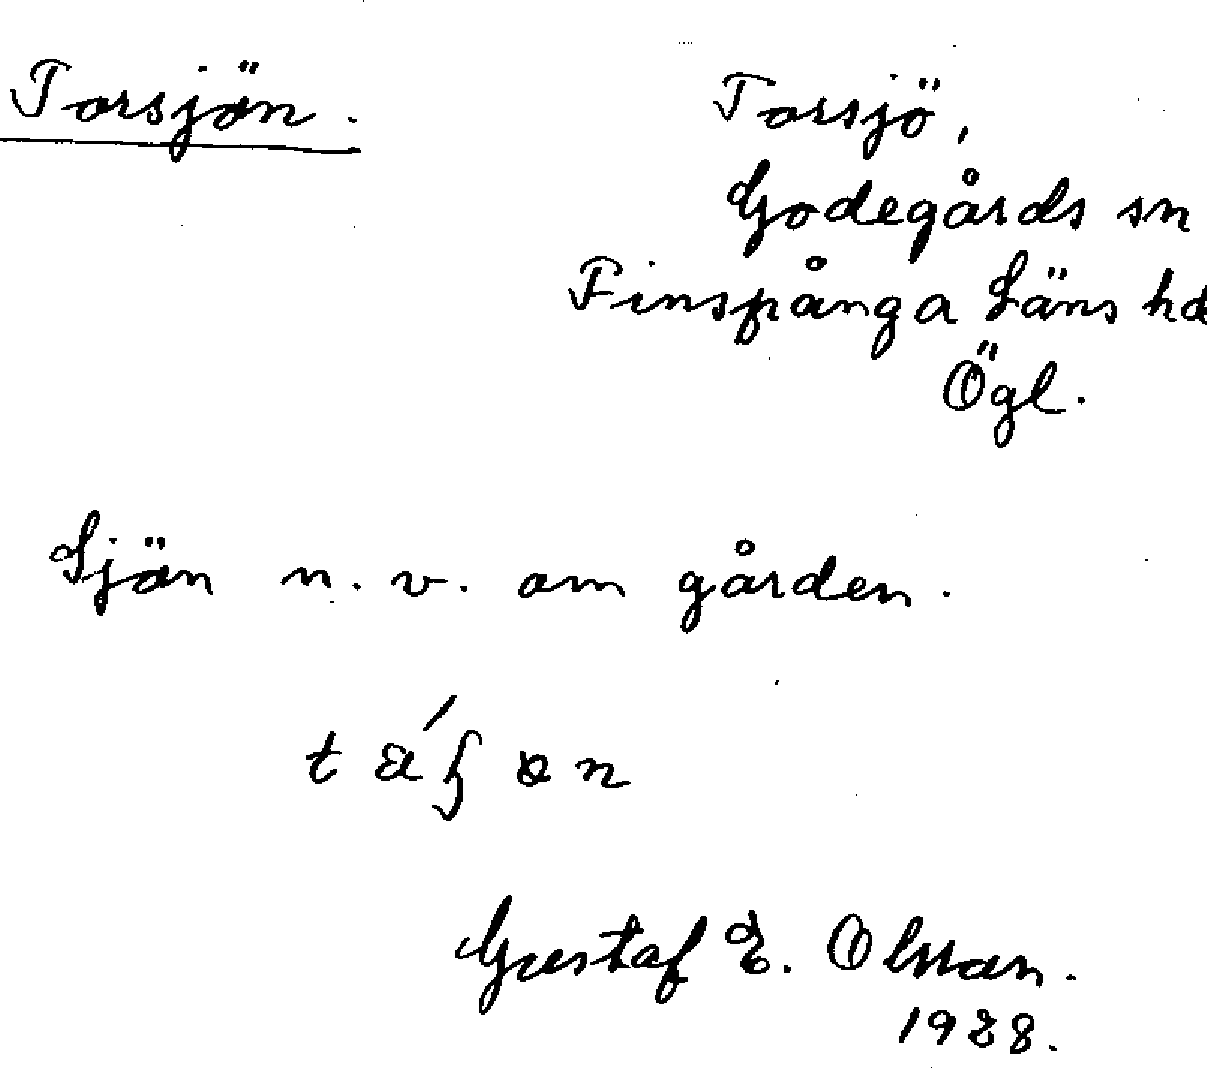 Torsjön.
Torsjö,
Godegårds sn
Finspånga Läns hd
Ögl.
Sjön n. v. om gården.
Gustaf E. Olsson.
1928.